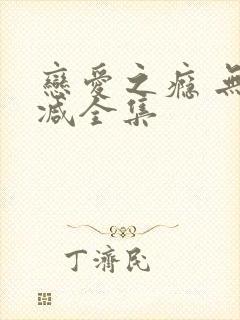 戀愛之瘾 無
减全集
丁濟民